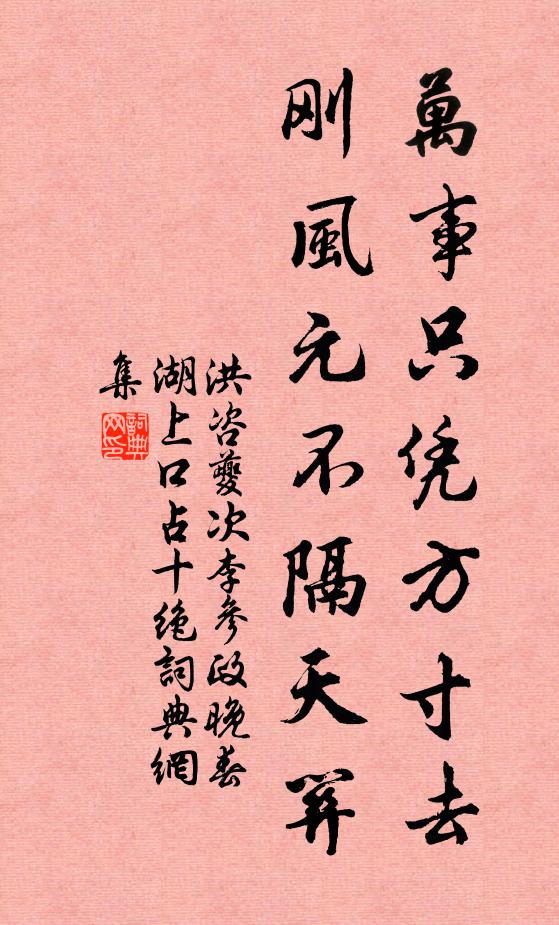 萬事只凭方寸去
刚風元不隔天
洪咨夔次李參政晚春
湖上口占十絶詞典網
集
詞典
网印